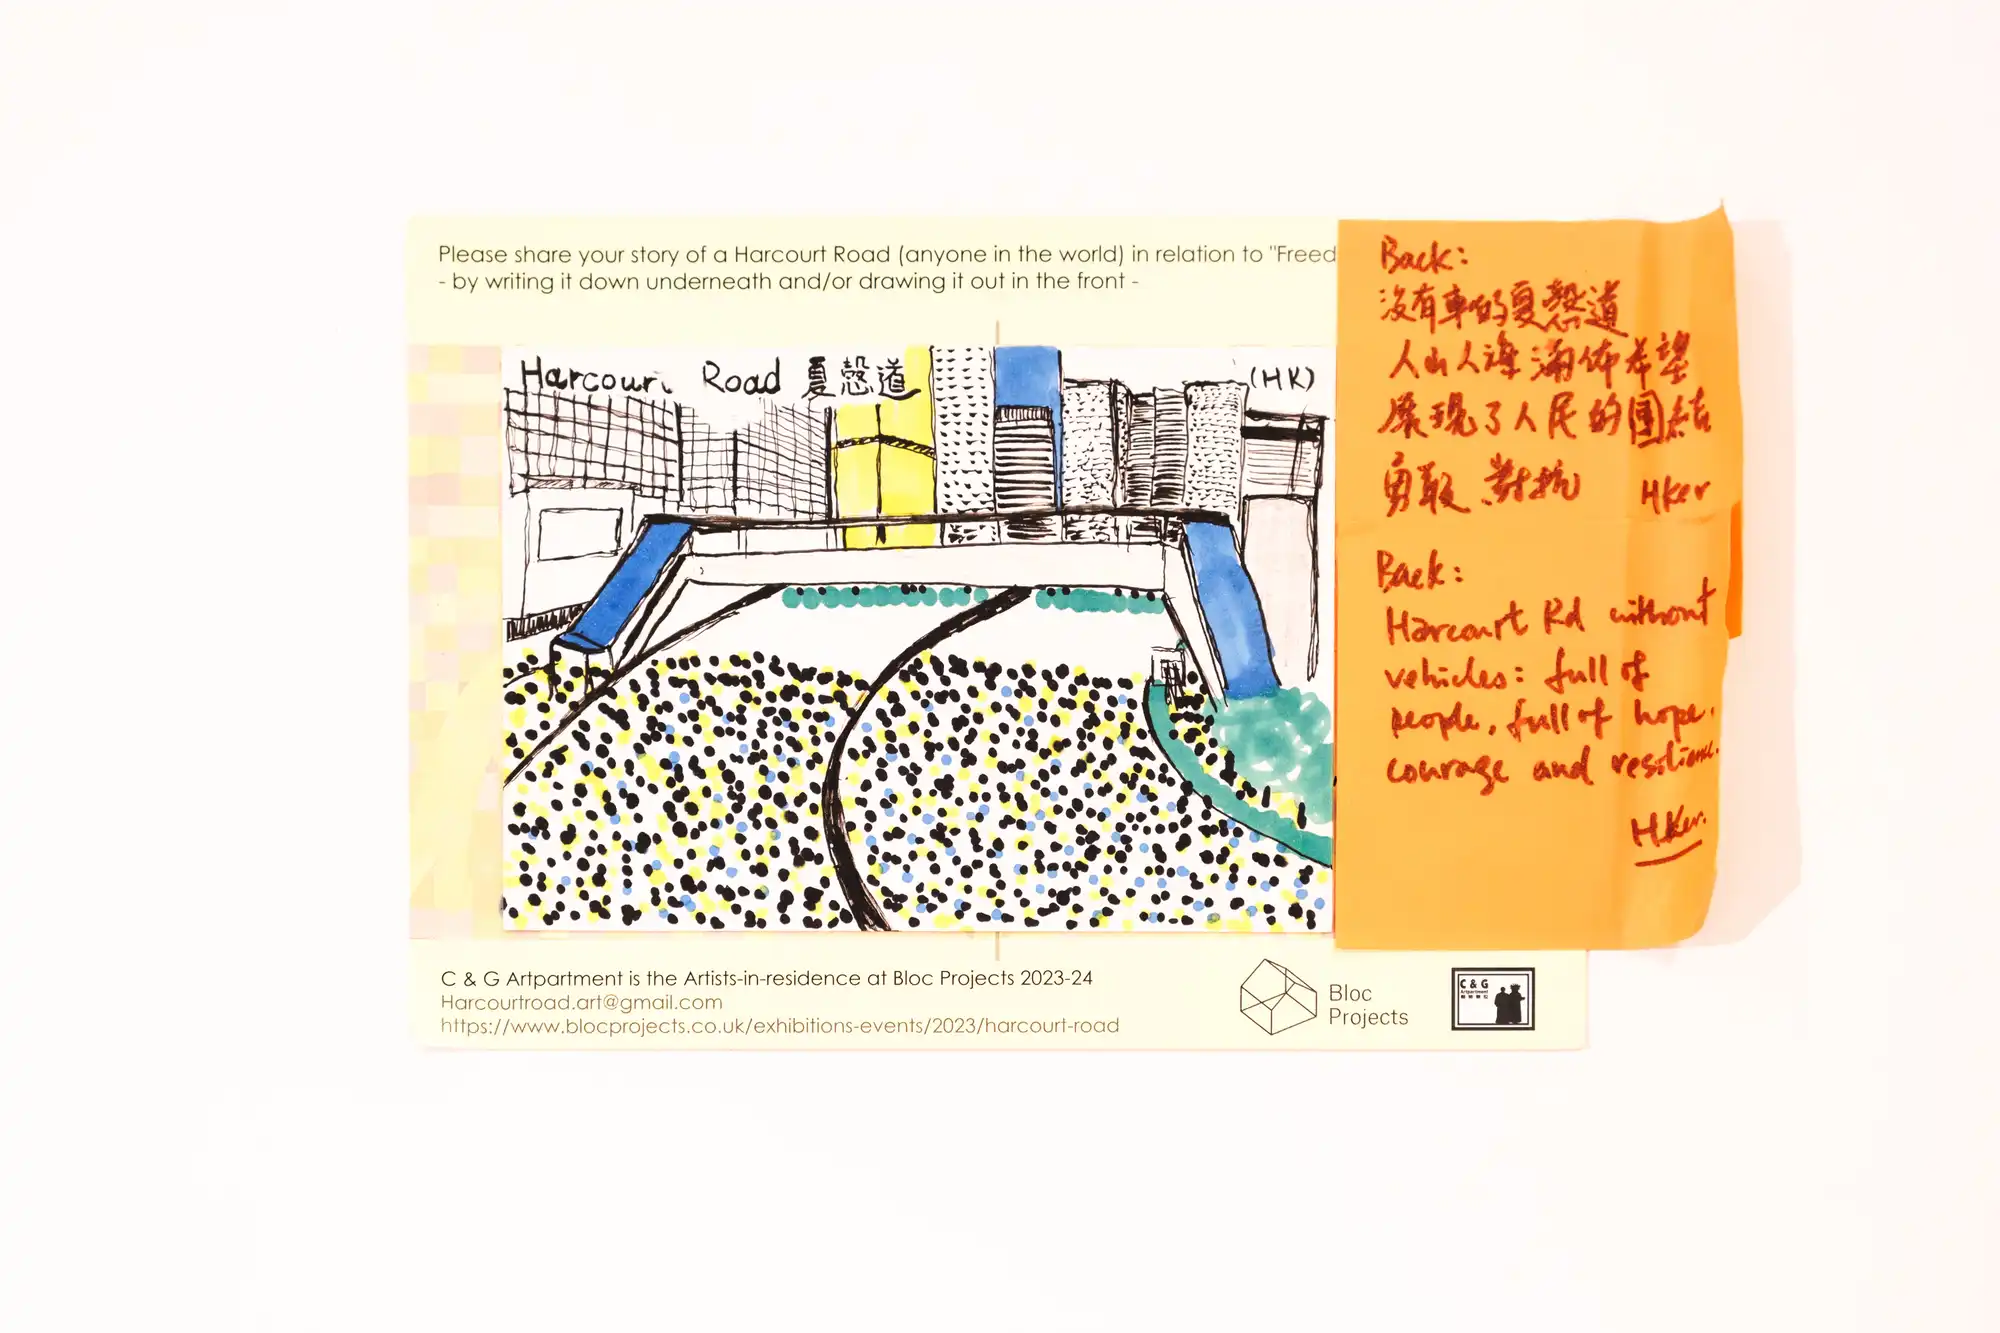 Please share your story of a Harcourt Road (anyone in the world) in relation to "Freed
- by writing it down underneath and/or drawing it out in the front -
Harcourt Road 夏慤道 (HK)
Back:
沒有車的夏慤道
人山人海 滿佈希望
展現了人民的團結
勇敢 對抗 HKer
Back:
Harcourt Rd without
vehicles: full of
people, full of hope.
courage and resilience.
HKer.
C & G Artpartment is the Artists-in-residence at Bloc Projects 2023-24
Harcourtroad.art@gmail.com
https://www.blocprojects.co.uk/exhibitions-events/2023/harcourt-road
Bloc
Projects
C & G
Artpartment